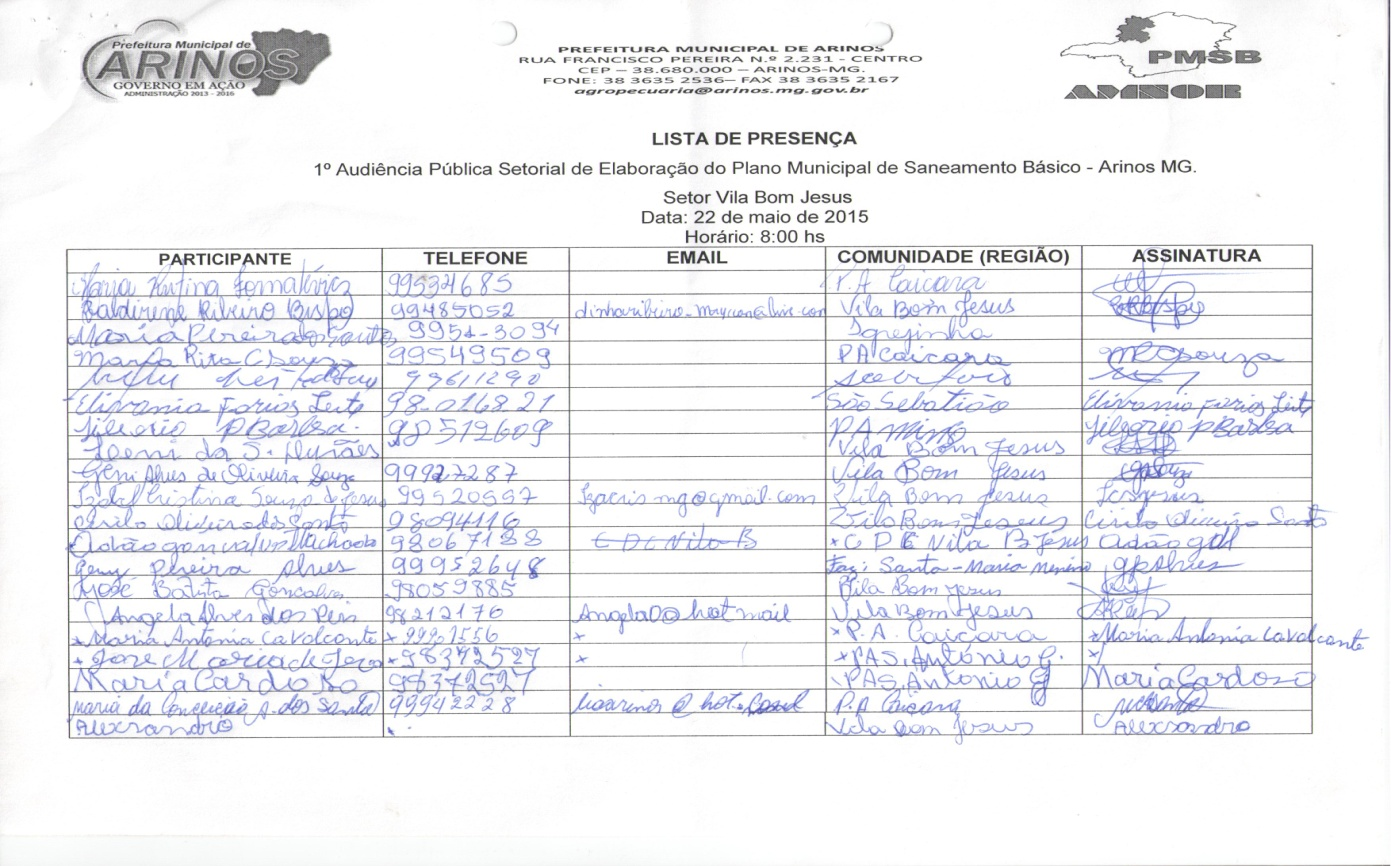 Prefeitura Municipal de
ARINOS
GOVERNO EM AÇÃO
ADMINISTRAÇÃO 2013 - 2016
PREFEITURA MUNICIPAL DE ARINOS
RUA FRANCISCO PEREIRA N.º 2.231 - CENTRO
CEP – 38.680.000 – ARINOS-MG.
FONE: 38 3635 2536– FAX 38 3635 2167
agropecuaria@arinos.mg.gov.br
PMSB
AMNOR
LISTA DE PRESENÇA
1º Audiência Pública Setorial de Elaboração do Plano Municipal de Saneamento Básico - Arinos MG.
Setor Vila Bom Jesus
Data: 22 de maio de 2015
Horário: 8:00 hs
PARTICIPANTE TELEFONE EMAIL COMUNIDADE (REGIÃO) ASSINATURA
Maria 99534685 P.A Caicara
Ribeiro Bispo 99485052 Vila Bom Jesus
Maria Pereira dos Santos 9951-3094 Igrejinha
Maria Rita C Souza 99549509 PA Caicara MRCSouza
99611290
Elivania Farias Leite 98-016821 São Sebatião Elivania Farias Leite
P Barbsa 98512609 PA Mimo P Barbsa
da S. Vila Bom Jesus
Geni Alves de Oliveira Souza 99927287 Vila Bom Jesus
Izabel Cristina Souza de Jesus 99520597 Izacris mg@gmail.com Vila Bom Jesus
Cirilo Oliveira do Santo 98094116 Vila Bom Jeseus Cirilo Oliveira Santo
Adão gonsalves Machado 98067188 × C D C Vila B Jesus Adão
Geny Pereira Alves 99952648 Faz: Santa-Maria
José Batista Goncalves 98059885 Vila Bom Jesus
Angela Alves dos Reis 98212176 Angela@hotmail Vila Bom Jesus
× Maria Antonia Cavalcante × 99901556 × × P.A. Caicara × Maria Antonia Cavalcante
× Jose Maria de × 98372527 × × PAS. António G. ×
Maria Cardoso 98372527 PAS. Antonio G Maria Cardoso
maria da Conceição A. dos Santos 99942228 P.A Caicara
Alexsandro Vila Bom Jesus Alexsandro